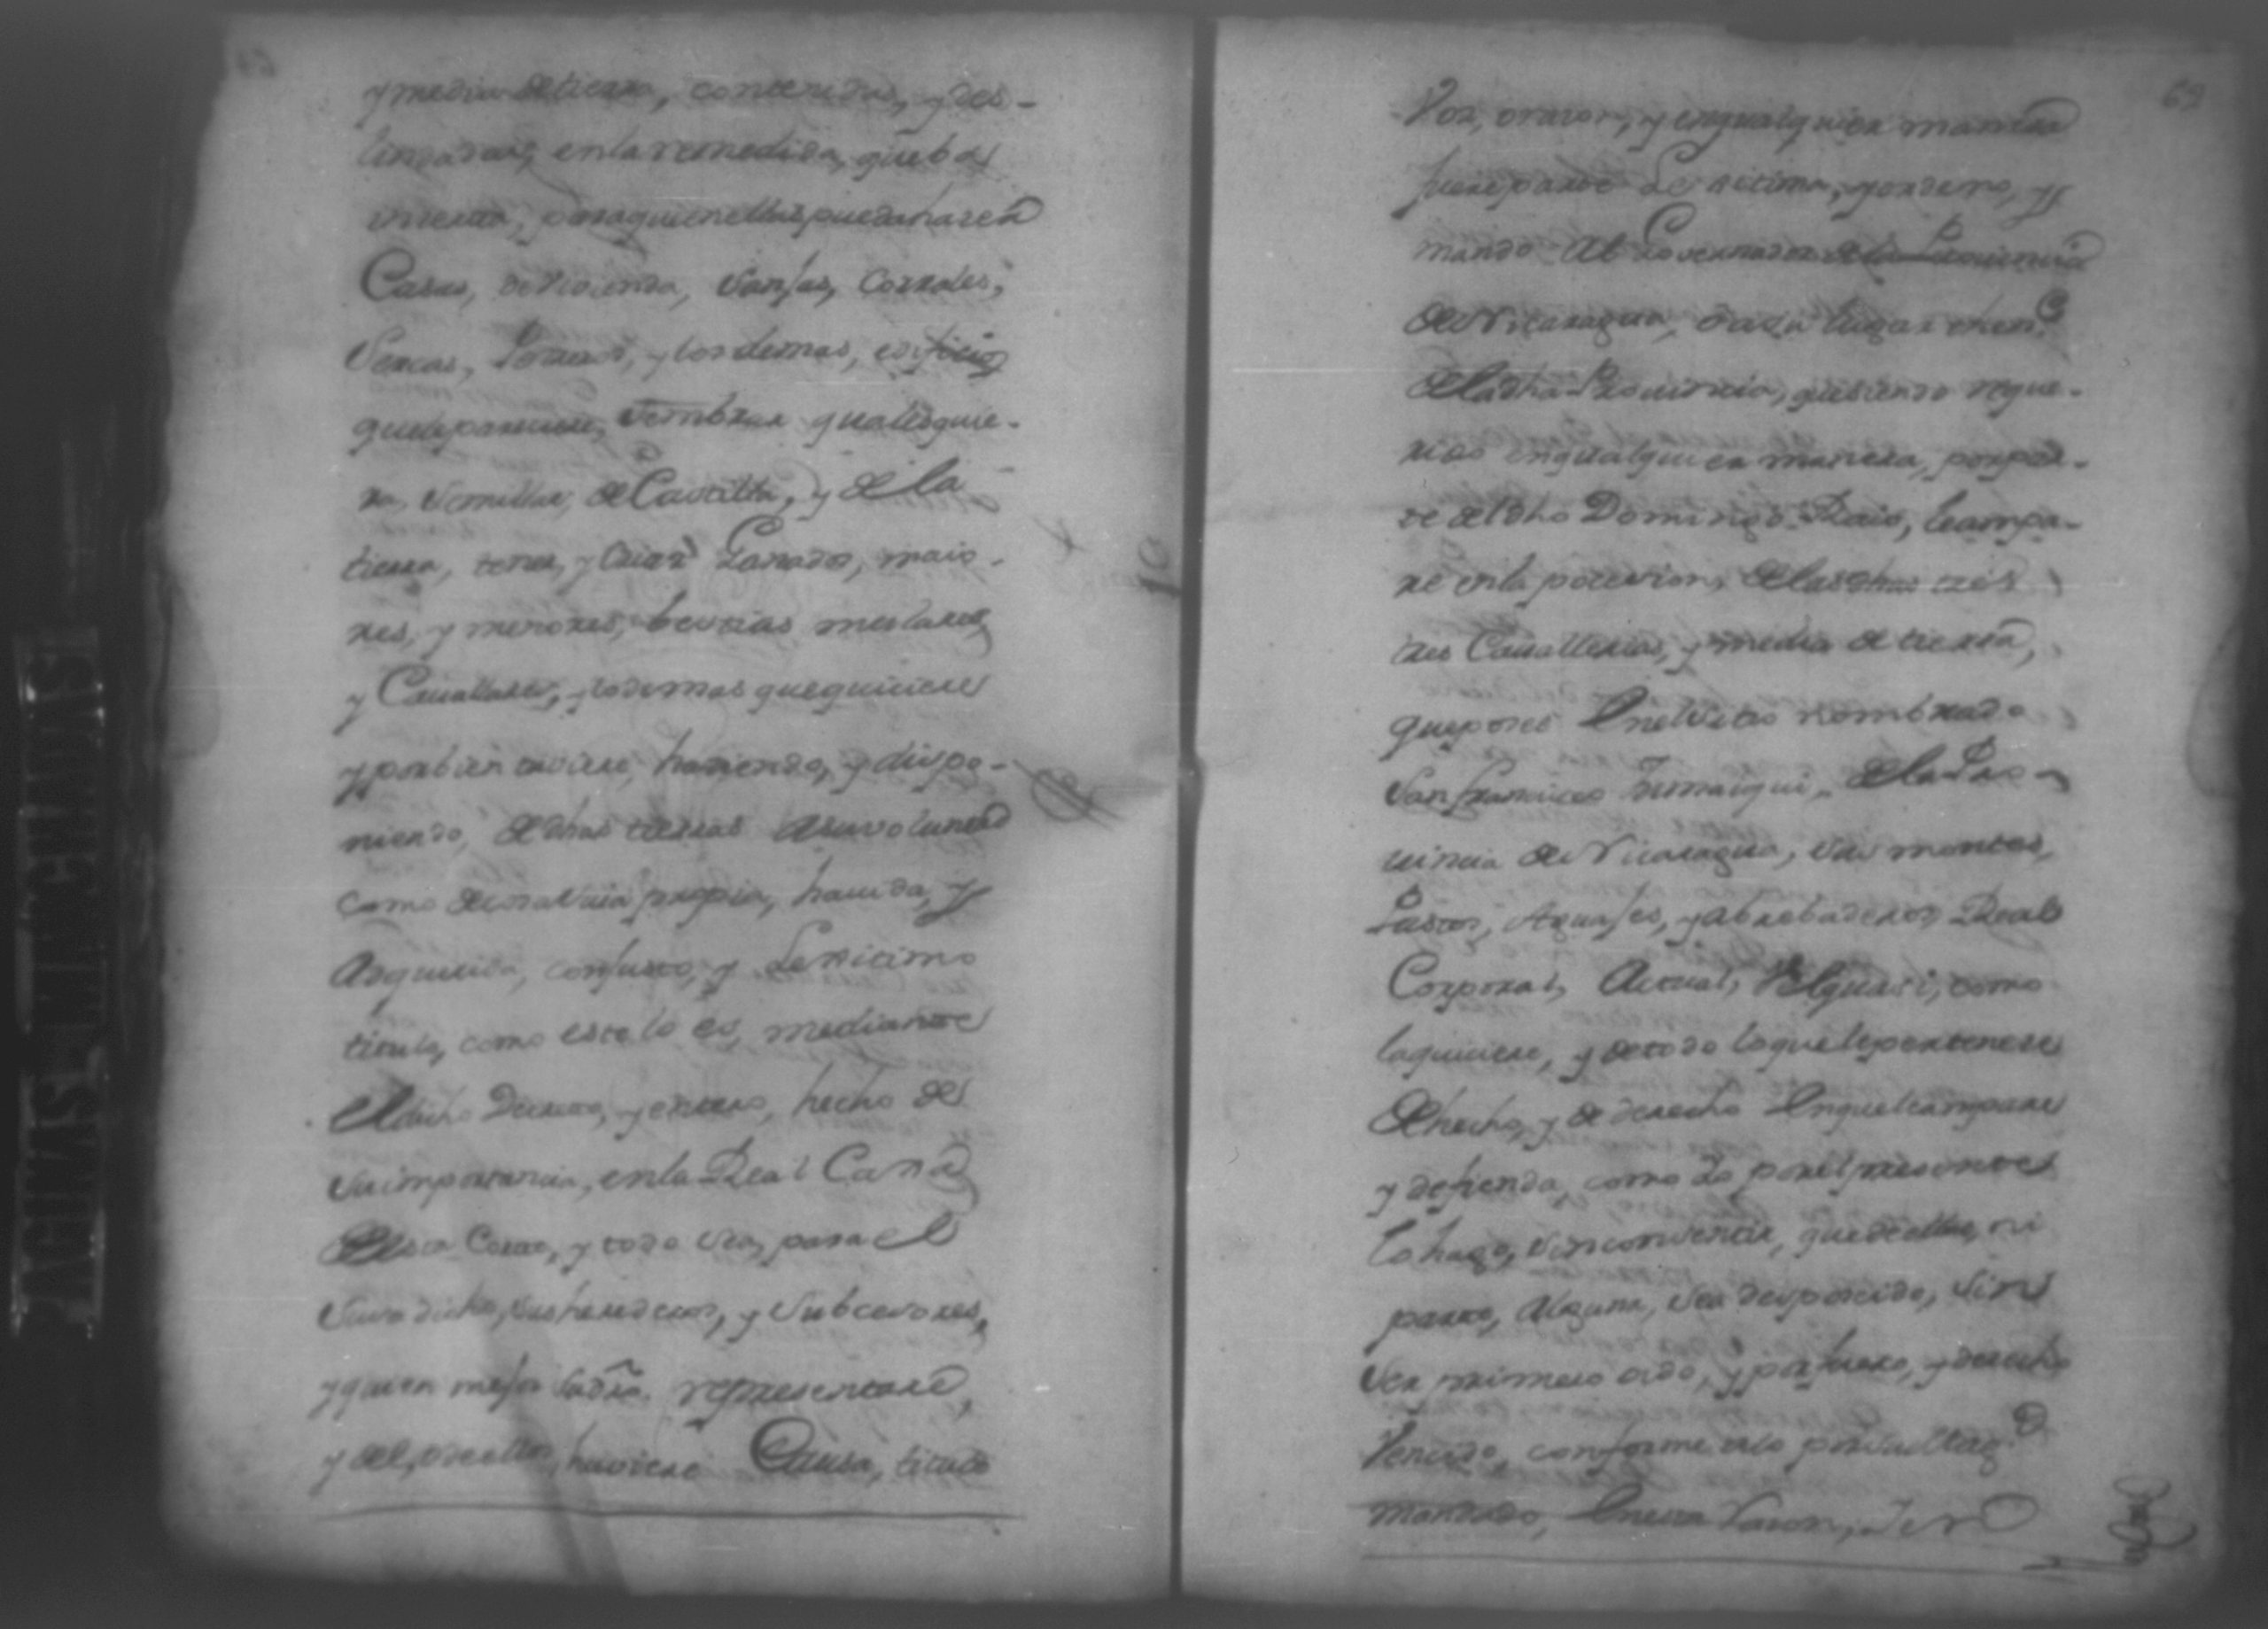 y media de tierra, contenidas, y des-
lindadas, en la remedida, que ba
inserta, para que en ellas pueda haser
Casas, de vivienda, Sanjas, Corrales,
Sercas, Potreros, y los demas, edificios
que le paresiere, sembrar qualesquie-
ra, semillas, de Castilla, y de la
tierra, tener, y Criar Ganados, maio-
res, y menores, bestias mulares
y Cauallares, y lo demas que quiciere
y por bien tuviere, hasiendo, y dispo-
niendo, de dhas tierras a su voluntad
como de cosa suia propia, hauida, y
Adquirida, con justo, y Lexitimo
titulo, como este lo es, mediante
el dicho Decreto, y entero, hecho de
su importancia, en la Real Caxa
de esta Corte, y todo sea, para el
suso dicho, sus herederos, y Subcesores,
y quien mejor su dro. representare,
y de el, o de ellos, huviere Causa, titulo
69
Voz, o razon, y en qualquier manera
fuere parte Lexitima, y ordeno, y
mando al Governador de la Prouincia
de Nicaragua, o a su lugar then.e
de la dha Prouincia, que siendo reque-
rido en qualquier manera, por par-
te de el dho Domingo Ruis, le ampa-
re en la posesion, de las dhas tres
tres Cauallerias, y media de tierra,
que posee En el sitio nombrado
San Francisco de la Pro-
uincia de Nicaragua, sus montes,
Pastos, Aguajes, y abrebaderos, Real
Corporal, Actual, Vel quasi, como
la quiciere, y de todo lo que le pertenese
de hecho, y de derecho En que le ampare
y defienda, como Yo por el presente
lo hago, sin consentir, que de ellas, ni
parte, Alguna, sea desposeido, sin
ser primero oido, y por fuero, y derecho
Vencido, conforme a lo por su Mag.d
mandado, En esta razon, y en